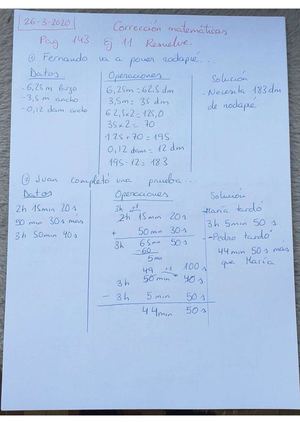 26-3-2020
Corrección matemáticas
Pag 143 Ej 11 Resuelve.
① Fernando va a poner rodapié...
Datos
-6,25m largo
-3,5m ancho
-0,12 dam
Operaciones
6,25m = 62,5 dm
3,5m = 35 dm
62,5x2 = 125,0
35x2 = 70
125+70 = 195
0,12 dam = 12 dm
195-12 = 183
Solución
- Necesita 183 dm
de rodapié
② Juan completó una prueba...
Datos
2h 15min 20s
50 min 30s mas
3h 50min 40s
Operaciones
3h +1
2h 15min 20s
+ 50min 30s
3h 65min 50s
-60
5min
49 +1 100s
3h 50min 40s
- 3h 5min 50s
44min 50s
Solución
-María tardó
3h 5min 50s
-Pedro tardó
44min 50s mas
que María